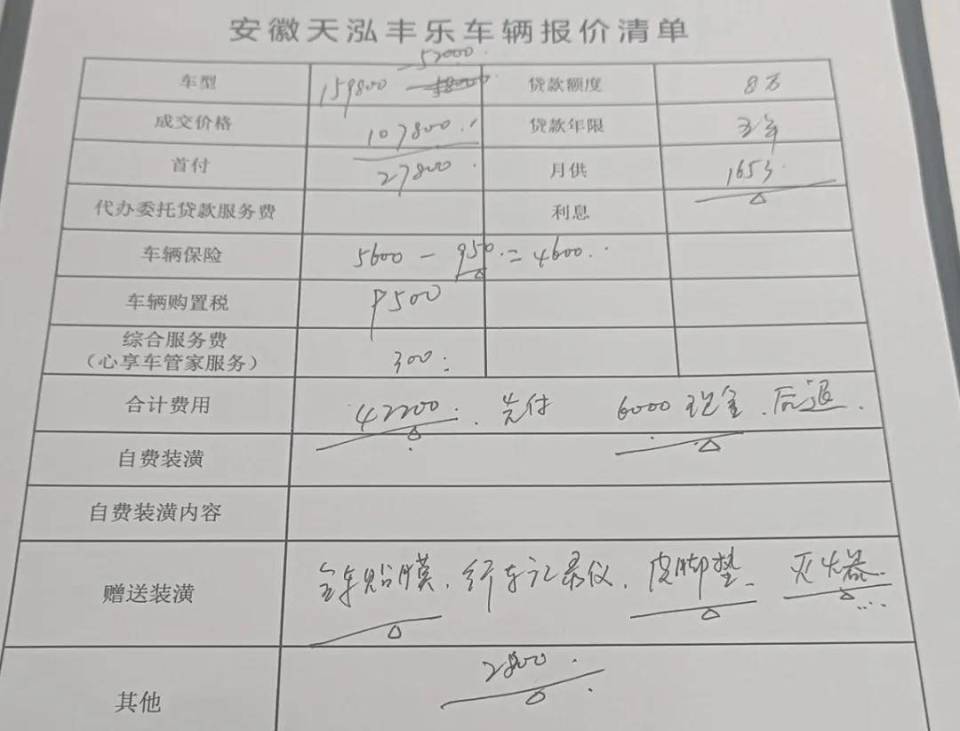 安徽天泓丰乐车辆报价清单
车型 159800 -52000 贷款额度 8万
成交价格 107800 贷款年限 五年
首付 27800 月供 1653
代办委托贷款服务费 利息
车辆保险 5600 - 950 = 4600
车辆购置税 9500
综合服务费 300
（心享车管家服务）
合计费用 42200 先付 6000现金.后退
自费装潢
自费装潢内容
赠送装潢 全车贴膜.行车记录仪.皮脚垫.灭火器
其他 2800